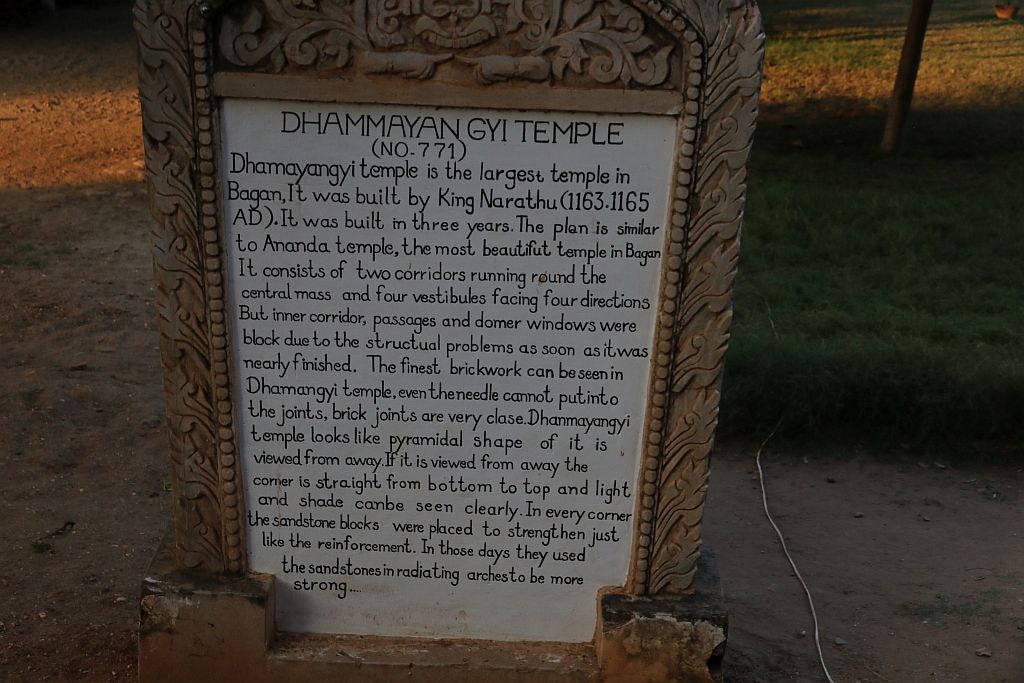 DHAMMAYAN GYI TEMPLE
(NO-771)
Dhamayangyi temple is the largest temple in
Bagan, It was built by King Narathu (1163.1165
AD). It was built in three years. The plen is similar
to Ananda temple, the most beautifut temple in Bagan
It consists of two corridors running round the
central mass and four vestibules facing four directions
But inner corridor, passages and domer windows were
block due to the structual problems as soon as it was
nearly finished. The finest brickwork can be seen in
Dhamangyi temple, even the needle cannot put into
the joints, brick joints are very clase. Dhanmayangyi
temple looks like pyramidal shape of it is
viewed from away. If it is viewed from away the
corner is straight from bottom to top and light
and shade canbe seen clearly. In every corner
the sandstone blocks were placed to strengthen just
like the reinforcement. In those days they used
the sandstones in radiating arches to be more
strong....